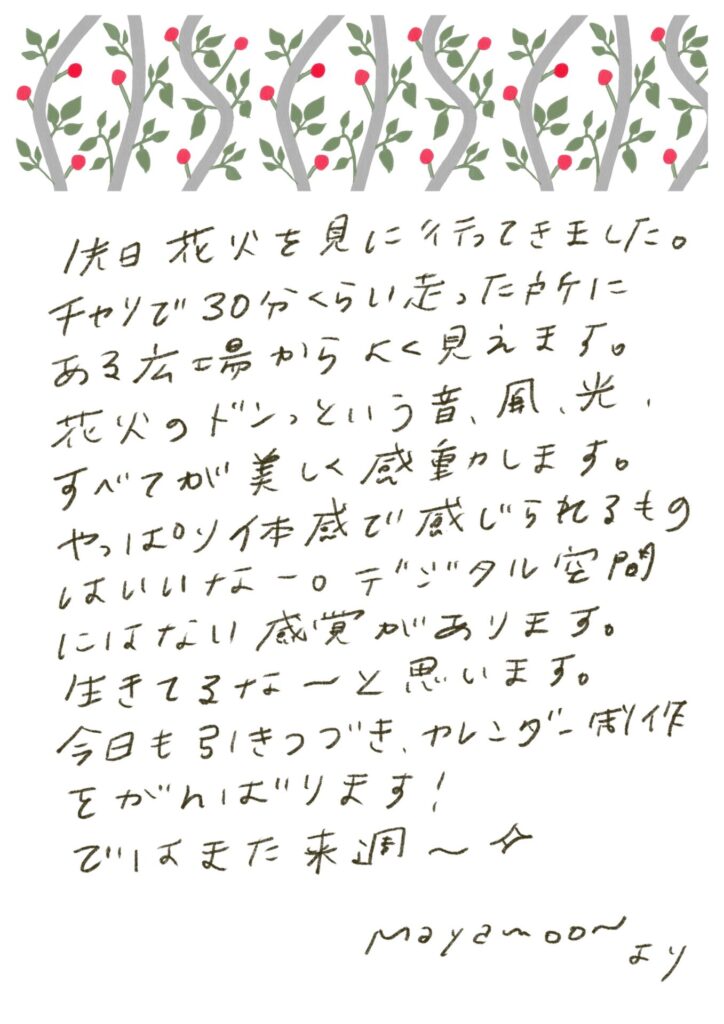 先日花火を見に行ってきました。
チャリで30分くらい走った所に
ある広場からよく見えます。
花火のドンっという音、風、光、
すべてが美しく感動します。
やっぱり体感で感じられるもの
はいいなー。デジタル空間
にはない感覚があります。
生きてるなーと思います。
今日も引きつづき、カレンダー制作
をがんばります!
ではまた来週〜✧
Mayamoon
より